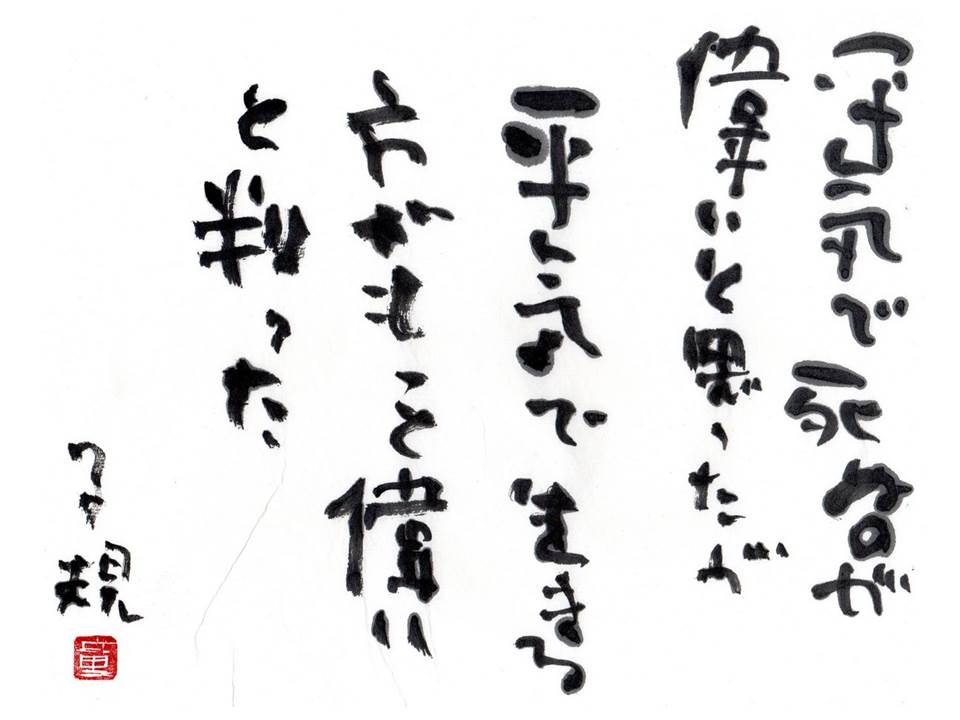 平気で死ぬるが
偉いと思ったが
平気で生きる
方がもっと偉い
と判った
子規
童